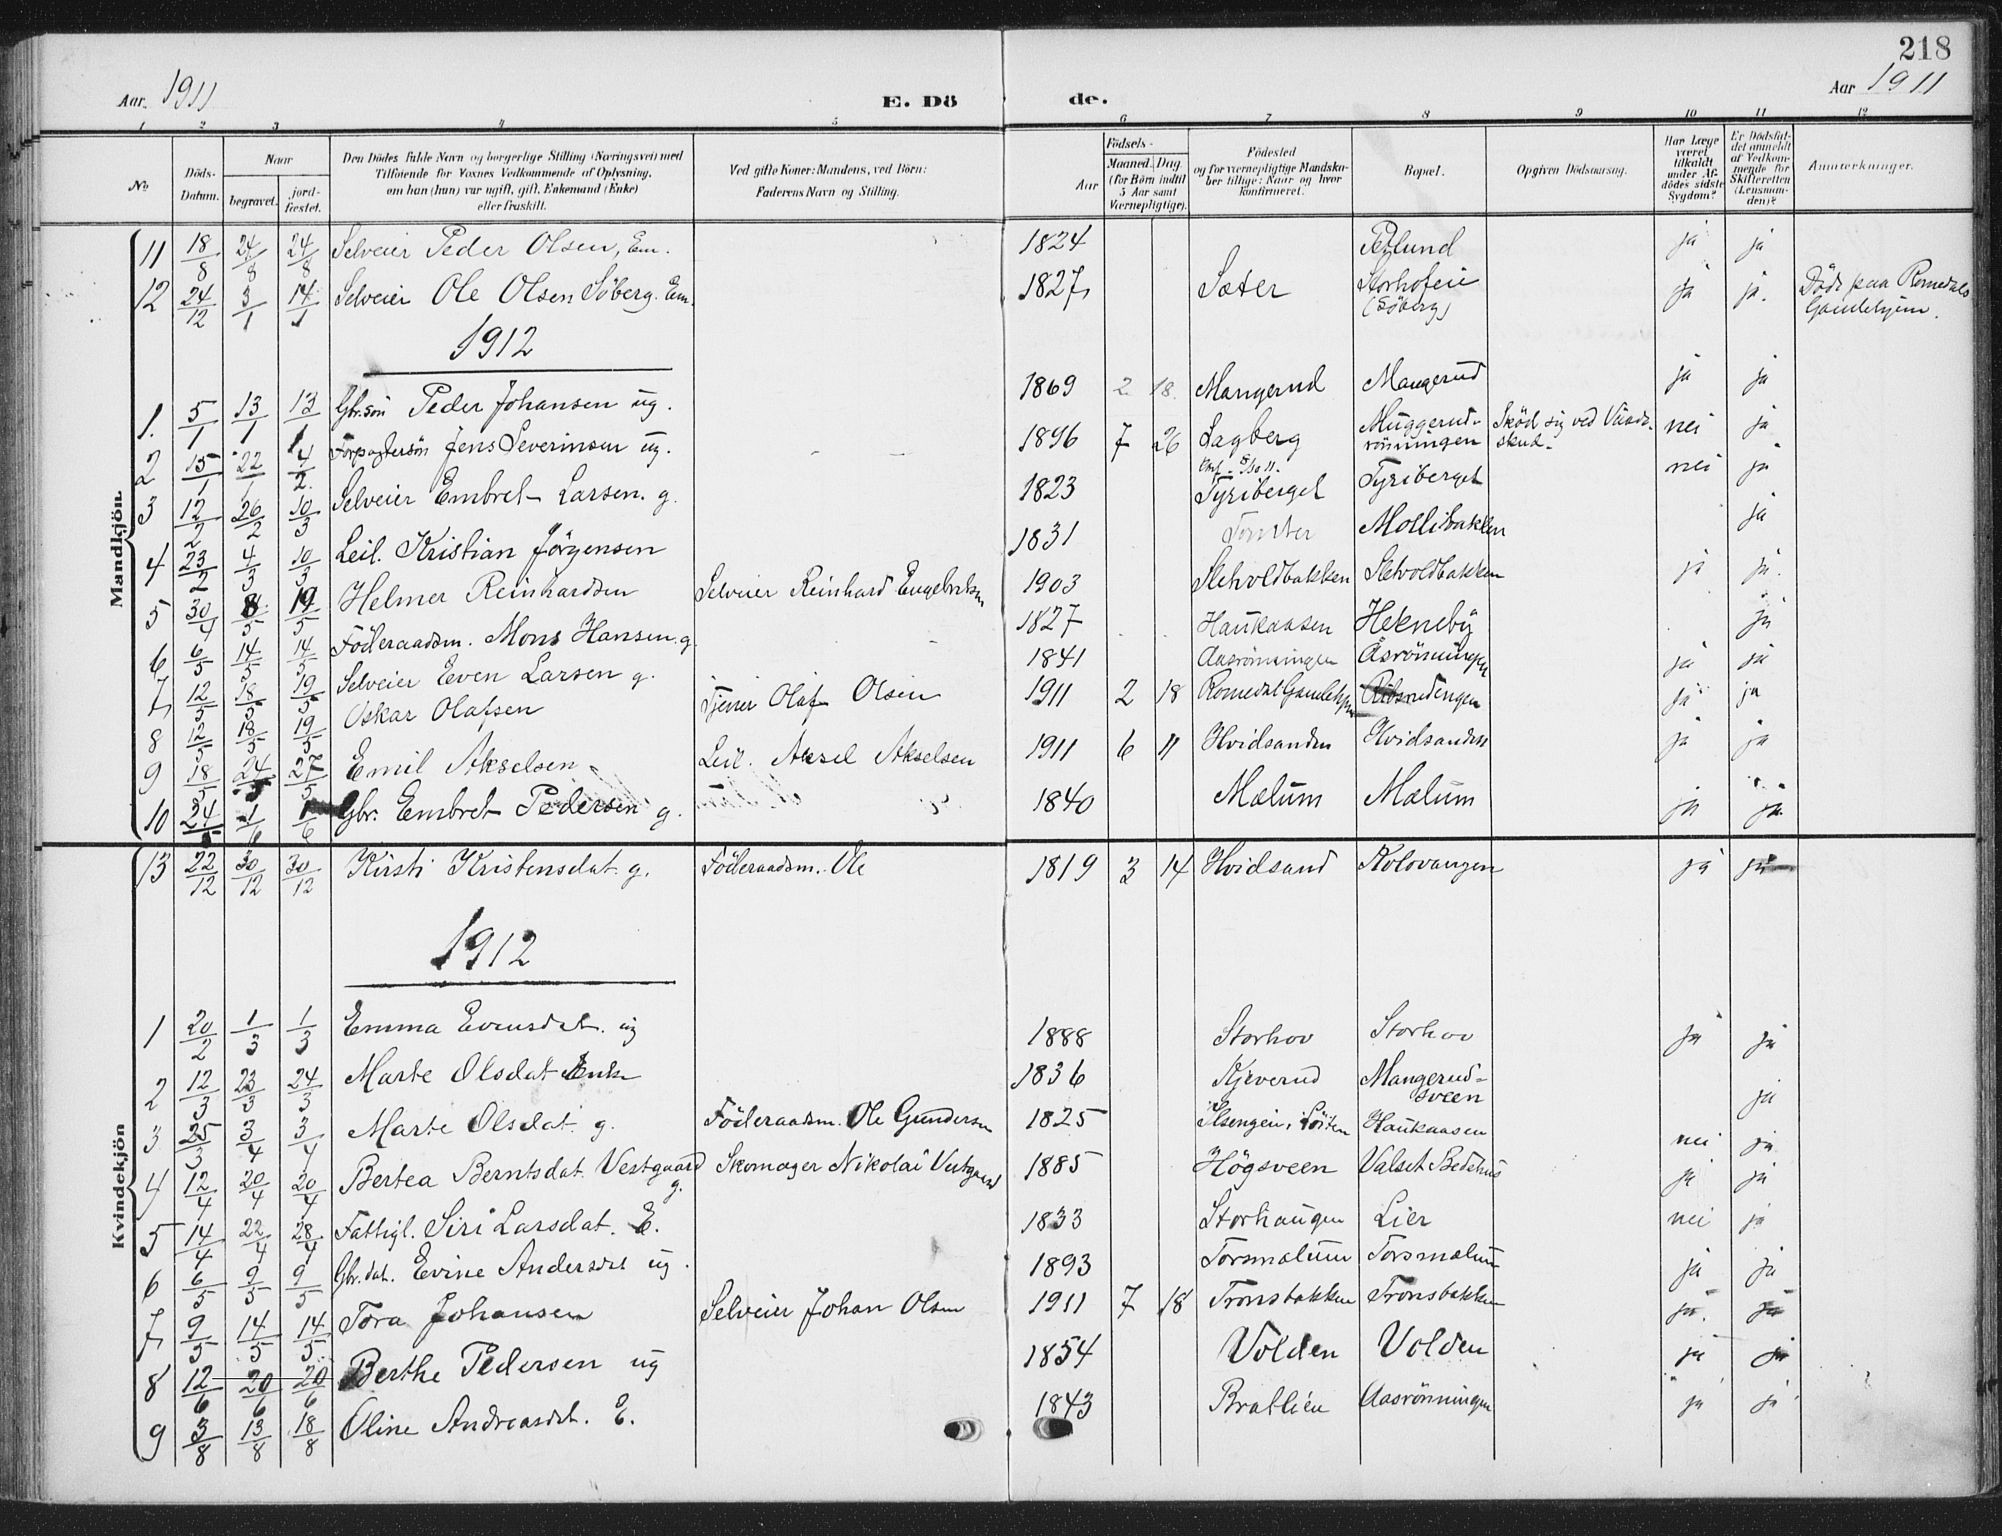 218
Aar. 1911 E. Dö de. Aar 1911
1 2 3 4 5 6 7 8 9 10 11 12
No
Döds-Datum.
Naar begravet. jord-fæstet.
Den Dödes fulde Navn og borgerlige Stilling (Næringsvei) med Tilföiende for Voxnes Vedkommende af Oplysning, om han (hun) var ugift, gift, Enkemand (Enke) eller fraskilt.
Ved gifte Koner: Mandens, ved Börn: Faderens Navn og Stilling.
Födsels-
Aar
Maaned. Dag. (for Börn indtil 5 Aar samt Værnepligtige).
Födested og for værnepligtige Mandskaber tillige: Naar og hvor konfirmeret.
Bopæl.
Opgiven Dödsaarsag.
Har Læge været tilkaldt under Afdödes sidste Sygdom?
Er Dödsfaldet anmeldt af Vedkommende for Skifteretten (Lensmanden)?
Anmærkninger.
Mandkjön
11 18/8 24/8 24/8 Selveier Peder Olsen, Em. 1824 ja ja
12 24/12 3/1 14/1 Selveier Ole Olsen Söberg. Em. 1827 Sæter Storhofeie (Söberg) ja ja. Död paa Romedals Gamlehjem.
1912
1. 5/1 13/1 13/1 Gbr.sön Peder Johansen ug. 1869 2 18. Mangerud Mangerud ja ja
2 15/1 22/1 4/2. Forpagtersön Jens Severinsen ug. 1896 7 26 Lagberg Muggerud-rönningen Sköd sig ved Vaade-skud. nei ja
3 12/2 26/2 10/3 Selveier Embret Larsen. g. 1823 Tyriberget Tyriberget nei ja
4 23/2 4/3 10/3 Leil. Kristian Jörgensen 1831 Tomter Mollibakken ja
5 30/4 8/5 19/5 Helmer Reinhardsen Selveier Reinhard Engebretsen 1903 Slehvoldbakken Slehvoldbakken ja ja.
6 6/5 14/5 14/5 Föderaadsm. Mons Hansen g. 1827 Haukaasen Hekneby ja
7 12/5 18/5 19/5 Selveier Even Larsen g. 1841 Aasrönningen Åsrönningen ja ja
8 12/5 18/5 19/5 Oskar Olafsen Tjener Olaf Olsen 1911 2 18 Romedal Gamlehjem ja ja
9 18/5 24/5 27/5 Emil Akselsen Leil. Aksel Akselsen 1911 6 11 Hvidsanden Hvidsanden ja ja
10 24/5 1/6 1/6 Gbr. Embret Pedersen g. 1840 Mælum Mælum ja ja
Kvindekjön
13 22/12 30/12 30/12 Kirsti Kristensdat. g. Föderaadsm. Ole 1819 3 14 Hvidsand Kolovangen ja ja
1912
1 20/2 1/3 1/3 Emma Evensdat. ug 1888 Storhov Storhov ja ja
2 12/3 23/3 24/3 Marte Olsdat Enke 1836 Kjeverud Mangerud-sveen ja
3 25/3 3/4 3/4 Marte Olsdat. g. Föderaadsm. Ole Gundersen 1825 Ilsengen i Löiten Haukaasen nei ja
4 12/4 20/4 20/4 Bertea Berntsdat. Vestgaard g. Skomager Nikolai Vestgaard 1885 Högsveen Valset Bedehus ja ja
5 14/4 22/4 28/4 Fattigl. Siri Larsdat. E. 1833 Storhaugen Lier nei ja
6 6/5 9/5 9/5 Gbr.dat. Evine Andersdat ug. 1893 Torsmælum Torsmælum ja ja
7 9/5 14/5 14/5 Tora Johansen Selveier Johan Olsen 1911 7 18 Tronsbakken Tronsbakken ja. ja
8 12/6 20/6 20/6 Berthe Pedersen ug 1854 Volden Volden ja ja
9 3/8 13/8 18/8 Oline Andreasdat. E. 1843 Bratlien Aasrönningen ja ja